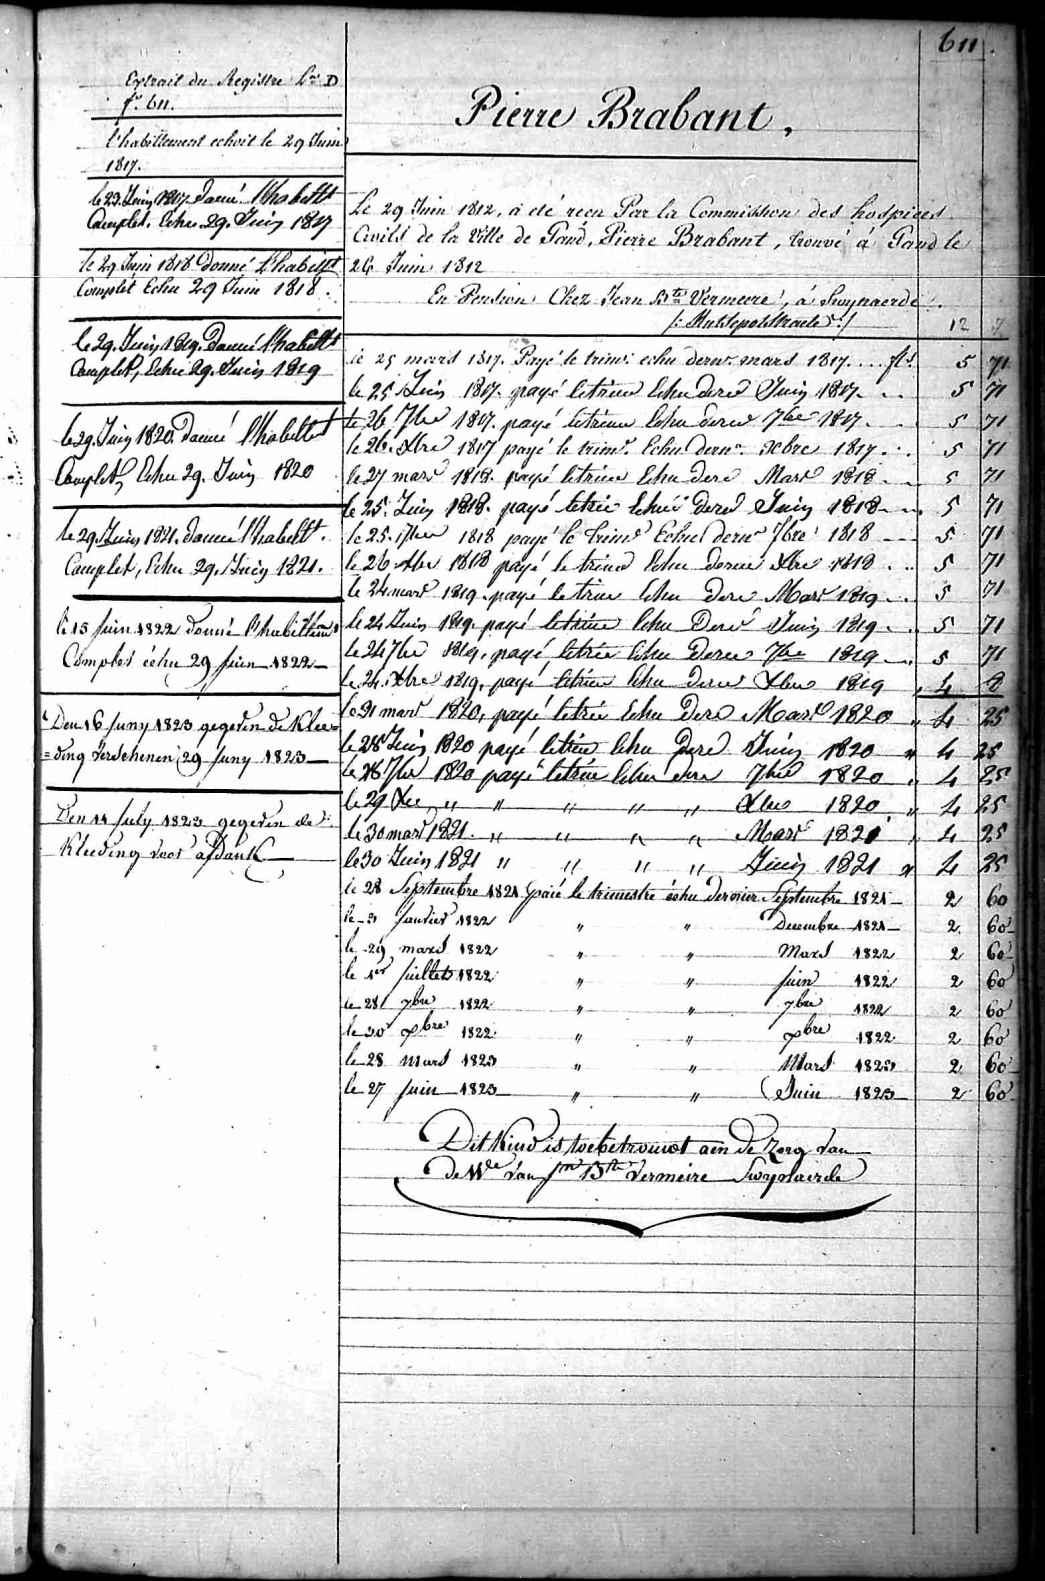 611.
Extrait du Registre Lre D
f° 611.
l'habillement echoit le 29 Juin
1817.
le 23. Juin 1817. Donné l'habellt
Complet, Echu 29. Juin 1817
le 29 Juin 1818 Donné l'habellt
Complèt Echu 29 Juin 1818.
le 29. Juin 1819. Donné l'habellt
Complet, Echu 29. Juin 1819
le 29. Juin 1820. Donné l'habellt
Complet, Echu 29. Juin 1820
le 29. Juin 1821. Donné l'habellt.
Complet, Echu 29. Juin 1821.
le 15 Juin 1822 donné l'habillem
Complet échu 29 Juin 1822
Den 16 Juny 1823 gegeven de klee=
=ding verschenen 29 Juny 1823
Den 14 July 1823 gegeven de
kleeding voor afdank
Pierre Brabant,
Le 29 Juin 1812, a été recu Par la Commission des hospices
Civils de la Ville de Gand, Pierre Brabant, trouvé à Gand le
26 Juin 1812
En Pension Chez Jean Bte Vermeere, à Swynaerde.
12
le 25 mars 1817. Payé le trimr. echu dernr. mars 1817. ... fls 5 71
le 25 Juin 1817. payé letrim Echu dere Juin 1817. .. 5 71
le 26 7bre 1817. payé letrim Echu dere 7bre 1817 . . 5 71
le 26. Xbre 1817 payé le trimr. Echu dernr. Xbre 1817 . . . 5 71
le 27 mars 1818. payé letrim Echu dere Mars 1818 . . 5 71
le 25. Juin 1818. payé letrim Echu dere Juin 1818 . . 5 71
le 25. 7bre 1818 payé le trimr Echu dernr 7bre 1818 --- 5 71
le 26 Xbre 1818 payé le trim Echu dere Xbre 1818 . . . 5 71
le 24 mars 1819. payé letrim Echu dere Mars 1819 . . 5 71
le 24 Juin 1819. payé letrim Echu Dere Juin 1819 . . 5 71
le 24 7bre 1819, payé, letrim Echu Dere 7bre 1819 . . 5 71
le 24. Xbre 1819, payé letrim Echu dere Xbre 1819 " 4 8
le 31 mars 1820, payé letrim Echu dere Mars 1820 " 4 25
le 28 Juin 1820 payé letrim Echu dere Juin 1820 " 4 25
le 26 7bre 1820 payé letrim Echu dere 7bre 1820 " 4 25
le 29 Xbre " " " " " Xbre 1820 " 4 25
le 30 mars 1821. " " " " Mars 1821 " 4 25
le 30 Juin 1821 " " " " Juin 1821 " 4 25
le 28 Septembre 1821 paié le trimestre échu dernier Septembre 1821 2 60
le 31 Janvier 1822 " " Decembre 1821 2 60
le 29 mars 1822 " " Mars 1822 2 60
le 1er Juillet 1822 " " Juin 1822 2 60
le 28 7bre 1822 " " 7bre 1822 2 60
le 30 xbre 1822 " " xbre 1822 2 60
le 28 Mars 1823 " " Mars 1823 2 60
le 27 Juin 1823 " " Juin 1823 2 60
Dit kind is toebetrouwt aen de zorg van
de We van Jn Bte Vermeire Swynaerde